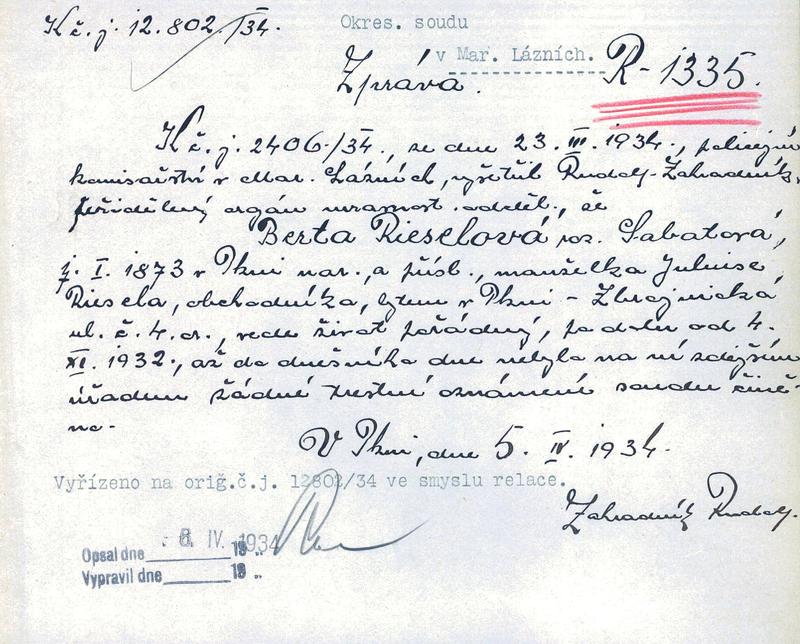 K č. j. 12.802/34.
Okres. soudu
v Mar. Lázních.
Zpráva.
R-1335.
K č. j. 2406/34, ze dne 23. III. 1934., policejní
komisařství v Mar. Lázních, vyšetřil Rudolf Zahradník,
přidělený orgán mravnost. odděl., že
Berta Rieselová roz. Sabatová,
I. 1873 v Plzni nar., a přísl., manželka Juliuse
Riesela, obchodníka, bytem v Plzni - Zbrojnická
ul. č. 4. vede život pořádný, po dobu od 4.
XI. 1932., až do dnešního dne nebylo na ní zdejším
úřadem žádné trestní oznámení soudu čině-
no.-
V Plzni, dne 5. IV. 1934.
Vyřízeno na orig.č.j. 12802/34 ve smyslu relace.
Zahradník Rudolf.
8. IV. 1934
Opsal dne 19 ..
Vypravil dne 19 ..